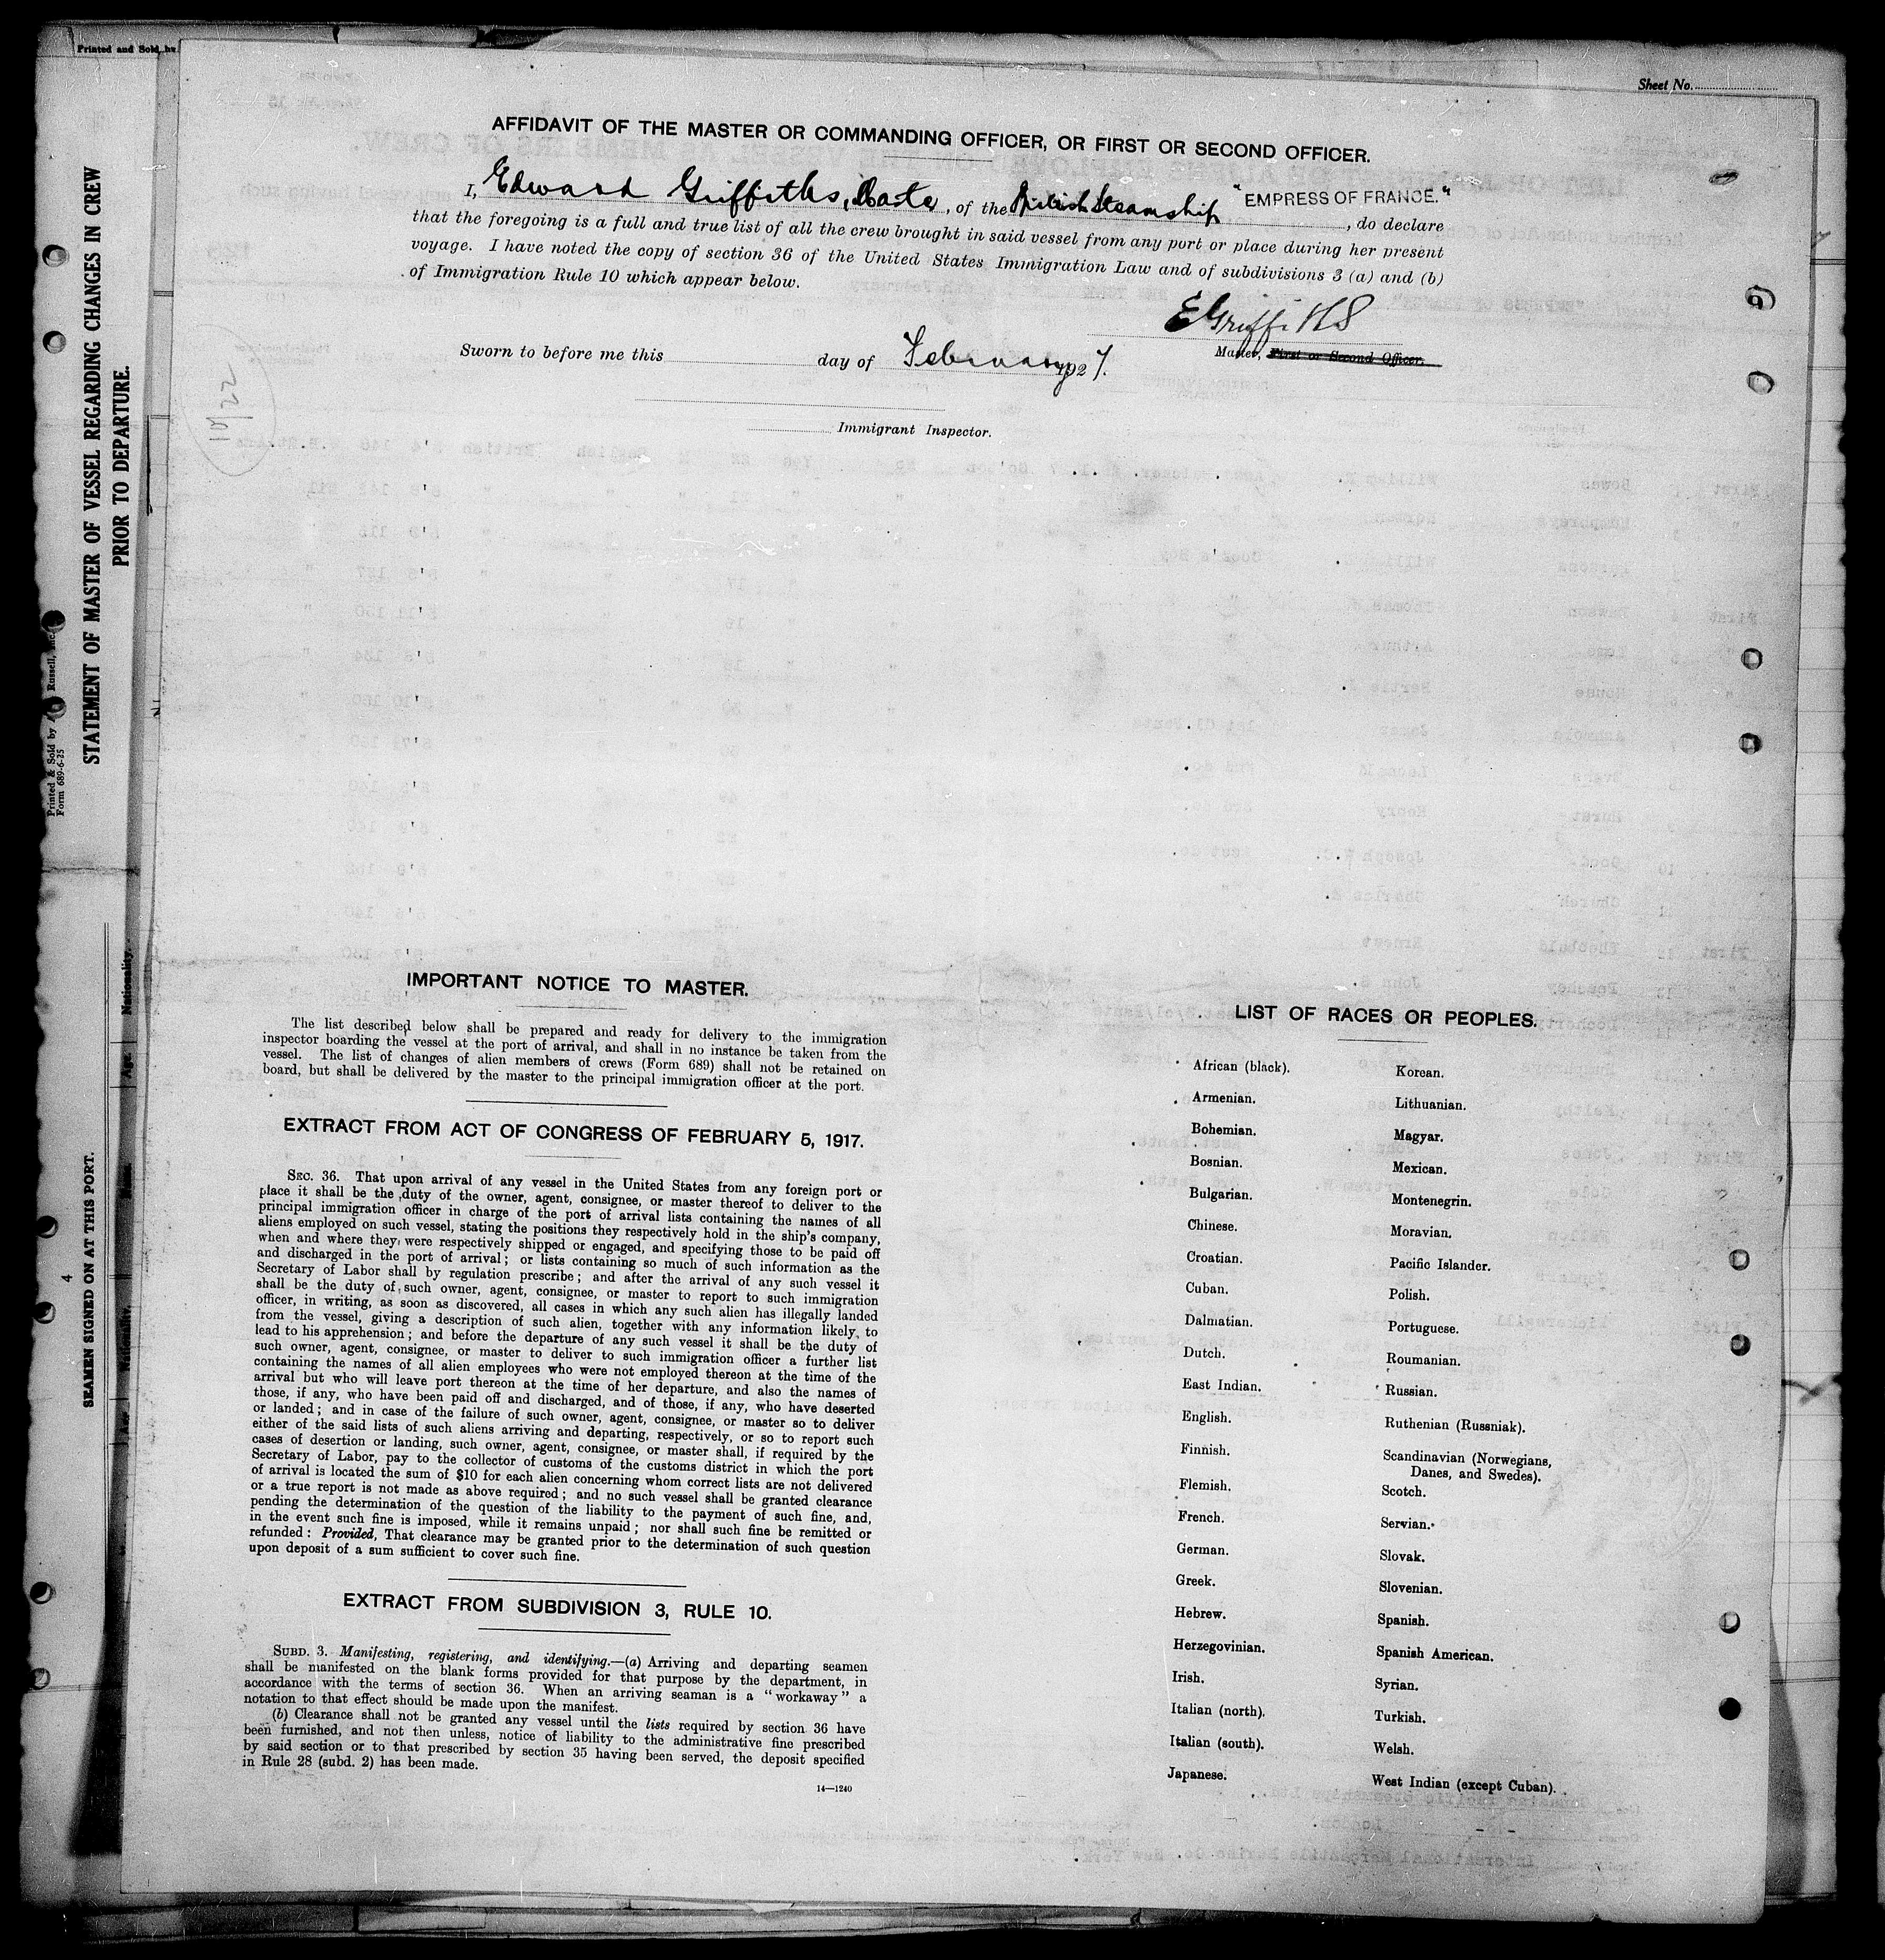 Printed and Sold by
Sheet No.
AFFIDAVIT OF THE MASTER OR COMMANDING OFFICER, OR FIRST OR SECOND OFFICER.
I, Edward Griffiths, Master, of the British Steamship "EMPRESS OF FRANCE.", do declare
that the foregoing is a full and true list of all the crew brought in said vessel from any port or place during her present
voyage. I have noted the copy of section 36 of the United States Immigration Law and of subdivisions 3 (a) and (b)
of Immigration Rule 10 which appear below.
EGriffiths
Master, First or Second Officer.
Sworn to before me this day of February, 1927.
Immigrant Inspector.
STATEMENT OF MASTER OF VESSEL REGARDING CHANGES IN CREW
PRIOR TO DEPARTURE.
Printed & Sold by Russell, Inc.
Form 689-6-25
Nationality.
Age.
4
SEAMEN SIGNED ON AT THIS PORT.
IMPORTANT NOTICE TO MASTER.
The list described below shall be prepared and ready for delivery to the immigration
inspector boarding the vessel at the port of arrival, and shall in no instance be taken from the
vessel. The list of changes of alien members of crews (Form 689) shall not be retained on
board, but shall be delivered by the master to the principal immigration officer at the port.
EXTRACT FROM ACT OF CONGRESS OF FEBRUARY 5, 1917.
SEC. 36. That upon arrival of any vessel in the United States from any foreign port or
place it shall be the duty of the owner, agent, consignee, or master thereof to deliver to the
principal immigration officer in charge of the port of arrival lists containing the names of all
aliens employed on such vessel, stating the positions they respectively hold in the ship's company,
when and where they were respectively shipped or engaged, and specifying those to be paid off
and discharged in the port of arrival; or lists containing so much of such information as the
Secretary of Labor shall by regulation prescribe; and after the arrival of any such vessel it
shall be the duty of such owner, agent, consignee, or master to report to such immigration
officer, in writing, as soon as discovered, all cases in which any such alien has illegally landed
from the vessel, giving a description of such alien, together with any information likely to
lead to his apprehension; and before the departure of any such vessel it shall be the duty of
such owner, agent, consignee, or master to deliver to such immigration officer a further list
containing the names of all alien employees who were not employed thereon at the time of the
arrival but who will leave port thereon at the time of her departure, and also the names of
those, if any, who have been paid off and discharged, and of those, if any, who have deserted
or landed; and in case of the failure of such owner, agent, consignee, or master so to deliver
either of the said lists of such aliens arriving and departing, respectively, or so to report such
cases of desertion or landing, such owner, agent, consignee, or master shall, if required by the
Secretary of Labor, pay to the collector of customs of the customs district in which the port
of arrival is located the sum of $10 for each alien concerning whom correct lists are not delivered
or a true report is not made as above required; and no such vessel shall be granted clearance
pending the determination of the question of the liability to the payment of such fine, and,
in the event such fine is imposed, while it remains unpaid; nor shall such fine be remitted or
refunded: Provided, That clearance may be granted prior to the determination of such question
upon deposit of a sum sufficient to cover such fine.
EXTRACT FROM SUBDIVISION 3, RULE 10.
SUBD. 3. Manifesting, registering, and identifying.—(a) Arriving and departing seamen
shall be manifested on the blank forms provided for that purpose by the department, in
accordance with the terms of section 36. When an arriving seaman is a "workaway" a
notation to that effect should be made upon the manifest.
(b) Clearance shall not be granted any vessel until the lists required by section 36 have
been furnished, and not then unless, notice of liability to the administrative fine prescribed
by said section or to that prescribed by section 35 having been served, the deposit specified
in Rule 28 (subd. 2) has been made.
14—1240
LIST OF RACES OR PEOPLES.
African (black).
Armenian.
Bohemian.
Bosnian.
Bulgarian.
Chinese.
Croatian.
Cuban.
Dalmatian.
Dutch.
East Indian.
English.
Finnish.
Flemish.
French.
German.
Greek.
Hebrew.
Herzegovinian.
Irish.
Italian (north).
Italian (south).
Japanese.
Korean.
Lithuanian.
Magyar.
Mexican.
Montenegrin.
Moravian.
Pacific Islander.
Polish.
Portuguese.
Roumanian.
Russian.
Ruthenian (Russniak).
Scandinavian (Norwegians,
Danes, and Swedes).
Scotch.
Servian.
Slovak.
Slovenian.
Spanish.
Spanish American.
Syrian.
Turkish.
Welsh.
West Indian (except Cuban).